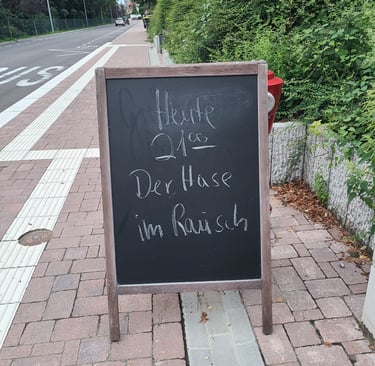 BUS
Heute
21⁰⁰
Der Hase
im Rausch